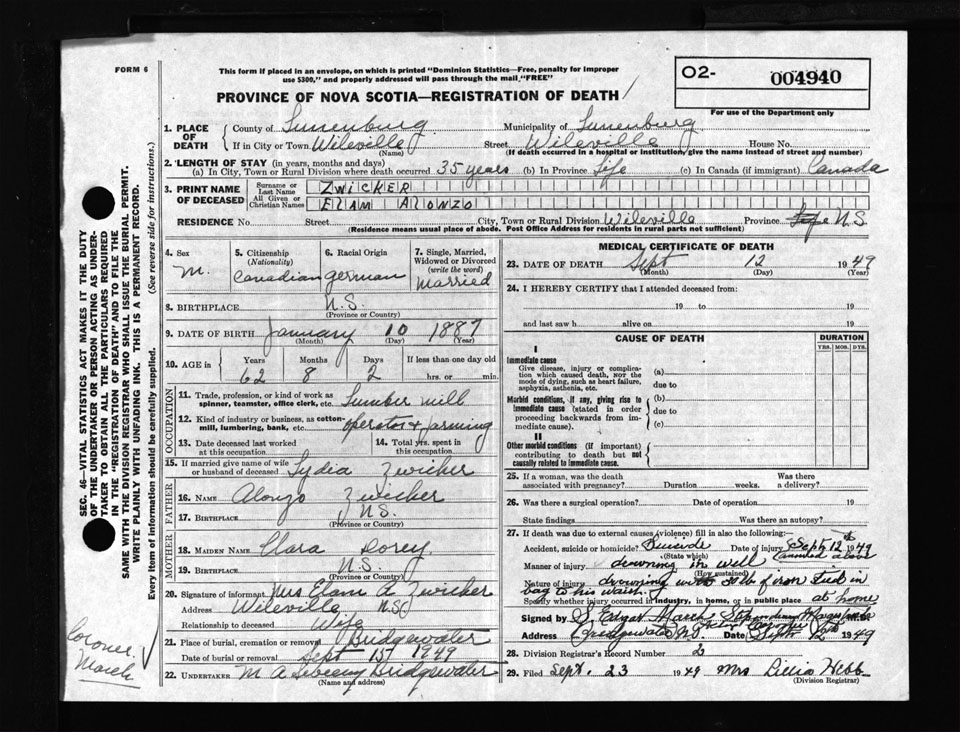 FORM 6
This form if placed in an envelope, on which is printed "Dominion Statistics—Free, penalty for improper
use $300," and properly addressed will pass through the mail "FREE"
O2- 004940
PROVINCE OF NOVA SCOTIA—REGISTRATION OF DEATH
For use of the Department only
1. PLACE OF DEATH
County of Lunenburg Municipality of Lunenburg
If in City or Town Wileville Street Wileville House No.
(Name) (If death occurred in a hospital or institution, give the name instead of street and number)
2. LENGTH OF STAY (in years, months and days)
(a) In City, Town or Rural Division where death occurred 35 years (b) In Province Life (c) In Canada (if immigrant) Canada
3. PRINT NAME OF DECEASED
Surname or Last Name ZWICKER
All Given or Christian Names ELAM ALONZO
RESIDENCE No. Street City, Town or Rural Division Wileville Province Life N.S.
(Residence means usual place of abode. Post Office Address for residents in rural parts not sufficient)
4. Sex M.
5. Citizenship (Nationality) Canadian
6. Racial Origin german
7. Single, Married, Widowed or Divorced (write the word) Married
8. BIRTHPLACE N.S.
(Province or Country)
9. DATE OF BIRTH January 10 1887
(Month) (Day) (Year)
10. AGE in Years Months Days If less than one day old
62 8 2 hrs. or min.
OCCUPATION
11. Trade, profession, or kind of work as
spinner, teamster, office clerk, etc. Lumber mill
12. Kind of industry or business, as cotton-
mill, lumbering, bank, etc. operator & farming
13. Date deceased last worked at this occupation
14. Total yrs. spent in this occupation
15. If married give name of wife
or husband of deceased Lydia Zwicker
FATHER
16. NAME Alonzo Zwicker
17. BIRTHPLACE N.S.
(Province or Country)
MOTHER
18. MAIDEN NAME Clara Dorey
19. BIRTHPLACE N.S.
(Province or Country)
20. Signature of informant Mrs Elam A Zwicker
Address Wileville, N.S.
Relationship to deceased Wife
21. Place of burial, cremation or removal Bridgewater
Date of burial or removal Sept 15 1949
22. UNDERTAKER M A Bridgewater
(Name and address)
MEDICAL CERTIFICATE OF DEATH
23. DATE OF DEATH Sept 12 1949
(Month) (Day) (Year)
24. I HEREBY CERTIFY that I attended deceased from:
19 to 19
and last saw h alive on 19
CAUSE OF DEATH DURATION
YRS. MOS. DYS.
I
Immediate cause
Give disease, injury or complica-
tion which caused death, NOT the
mode of dying, such as heart failure,
asphyxia, asthenia, etc.
(a)
due to
Morbid conditions, if any, giving rise to
immediate cause (stated in order
proceeding backwards from im-
mediate cause).
(b)
due to
(c)
II
Other morbid conditions (if important)
contributing to death but not
causally related to immediate cause.
25. If a woman, was the death
associated with pregnancy? Duration weeks. Was there a delivery?
26. Was there a surgical operation? Date of operation 19
State findings Was there an autopsy?
27. If death was due to external causes (violence) fill in also the following:—
Accident, suicide or homicide? Suicide Date of injury Sept 12 1949
(State which)
Manner of injury drowning in well
(How sustained)
Nature of injury drowning with lb of iron tied in
bag to his waist.
Specify whether injury occurred in industry, in home, or in public place at home
Signed by S Edgar March
Address Bridgewater N.S. Date Sept 1949
28. Division Registrar's Record Number 2
29. Filed Sept. 23 1949 Mrs Lillia Hebb
(Division Registrar)
SEC. 46—VITAL STATISTICS ACT MAKES IT THE DUTY
OF THE UNDERTAKER OR PERSON ACTING AS UNDER-
TAKER TO OBTAIN ALL THE PARTICULARS REQUIRED
IN THE "REGISTRATION OF DEATH" AND TO FILE THE
SAME WITH THE DIVISION REGISTRAR WHO SHALL ISSUE THE BURIAL PERMIT.
WRITE PLAINLY WITH UNFADING INK. THIS IS A PERMANENT RECORD.
Every item of information should be carefully supplied. (See reverse side for instructions.)
Coroner
March